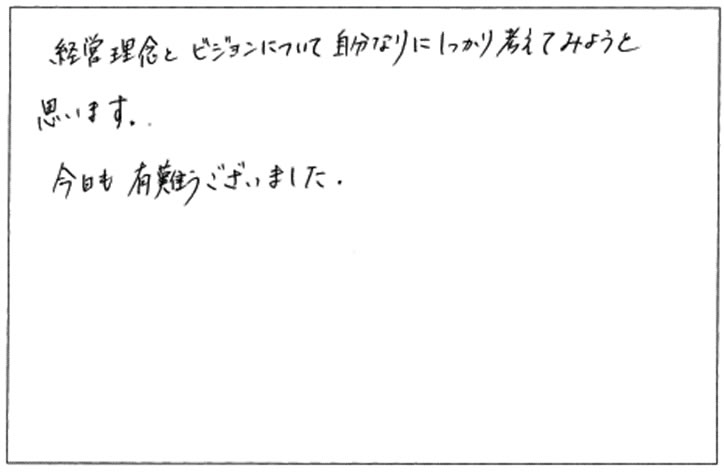 経営理念とビジョンについて自分なりにしっかり考えてみようと
思います。
今日も有難うございました。